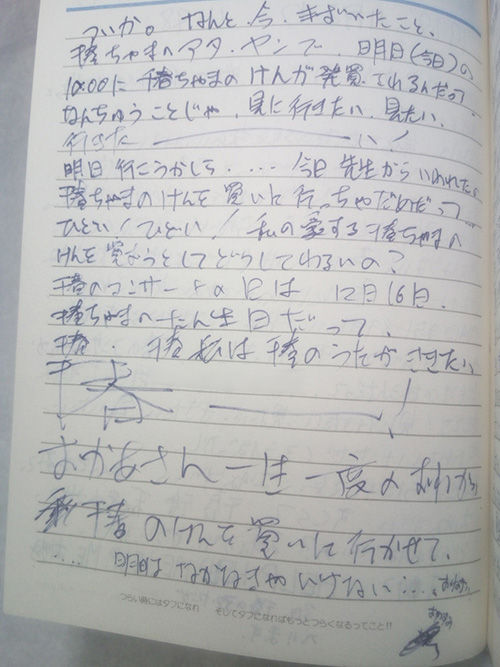 ついか。なんと、今、きづいたこと、
椿ちゃまの アタ・ヤンで、明日(今日)の
10:00に 椿ちゃまの けんが 発買 てれるんだって
なんちゅうことじゃ、見に行きたい、見たい、
行きた ー い!
明日 行こうかしら・・・・・ 今日 先生から いわれた。
椿ちゃまのけんを 買いに 行っちゃだめだって
ひどい!ひどい! 私の愛する 椿ちゃまの
けんを買おうとしてどうしてわるいの?
椿のコンサートの日は 12月16日.
椿ちゃまのたん生日だって、
椿、椿 私は 椿のうたが ききたい
椿 ー !
おかあさんー生一度のおねがい
椿のけんを買いに行かせて、
・・・・ 明日は なかなきゃ いけない・・・。
つらい時にはタフになれ そしてタフになればもっとつらくなるってこと!!